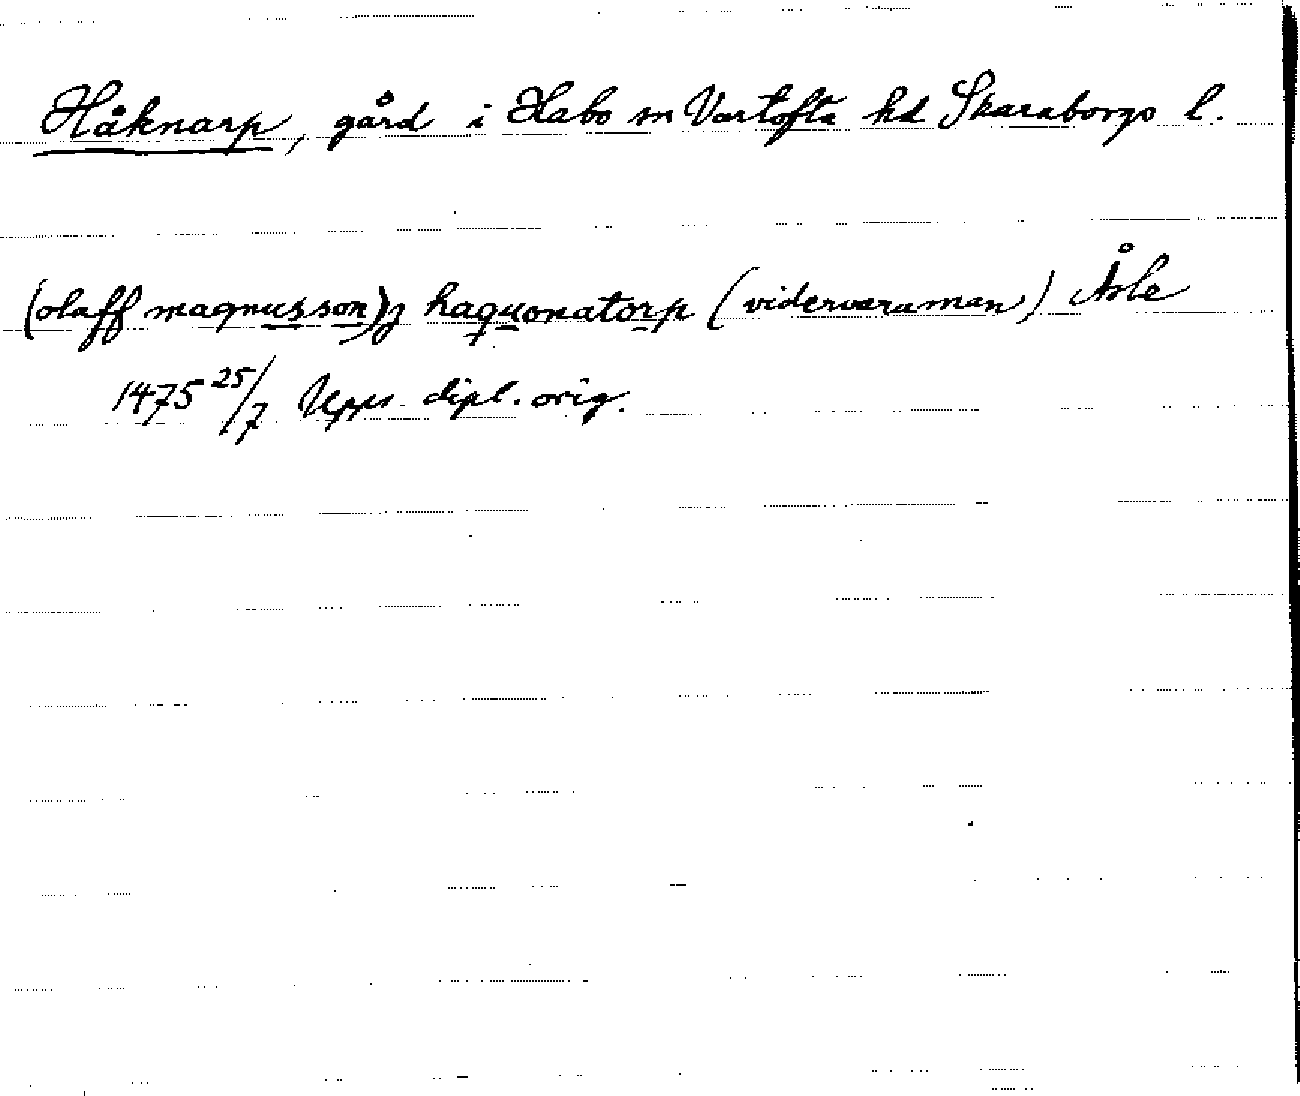 Håknarp, gård i Habo sn Vartofta hd Skaraborgs l.
(olaff magnusson) j haquonatorp (vidervaruman) Åsle
1475 25/7 Upps. dipl. orig.